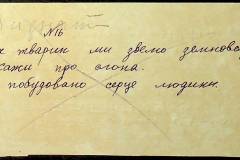 Варіант
№16
х тварин ми звемо земновод
кажи про огона.
побудовано серце людини.